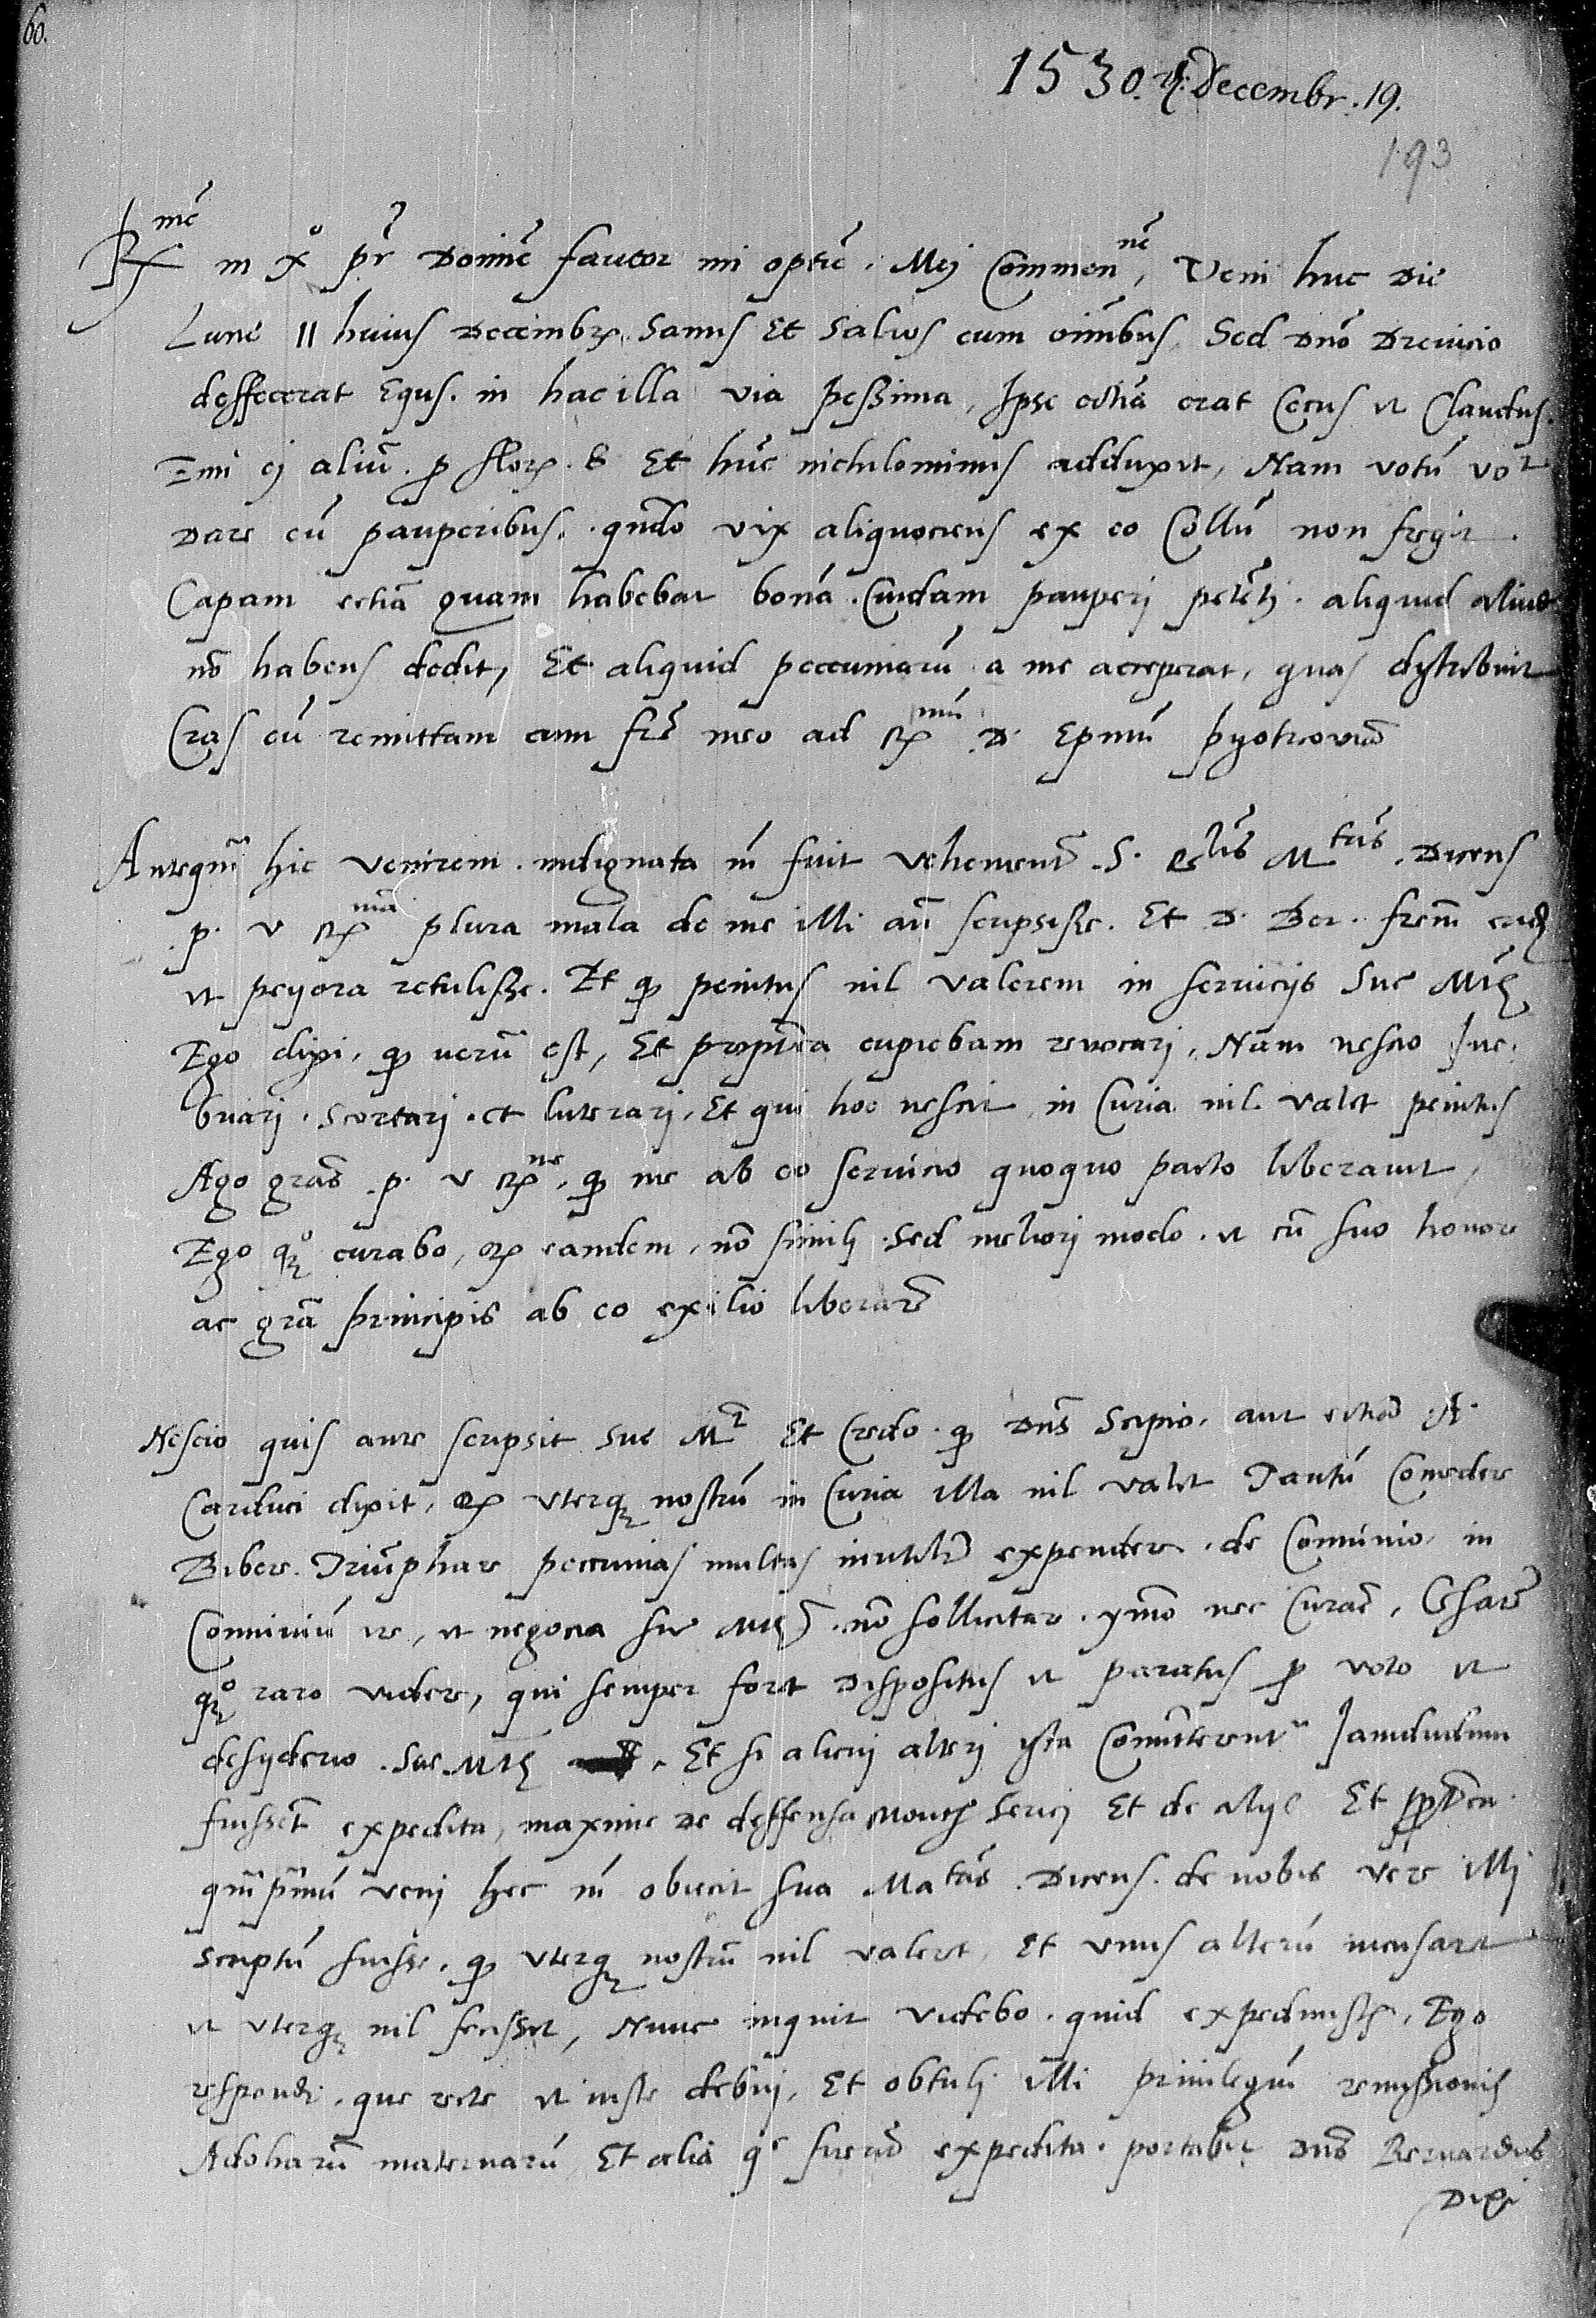 60.
1530. d. Decembr. 19.
193
Rme in xo pr Domine fautor mi optie. Mej Commenne, Veni huc Die
Lune 11 huius Decembr. Sanus Et Salvos cum omnibus, Sed dno Drevicio
deffecerat Equs. in hac illa via pessima, Ipse etiā erat Cecus et Claudus.
Emi ej aliū. p flor. 8 Et hūc nichilominus adduxit, Nam votū vo
dare eū pauperibus. qñdo vix aliquociens ex eo Collū non fregit.
Capam etiā quam habebat bonā. Cuidam pauperi petēti. aliquid aliud
nō habens dedit, Et aliquid peccuniarū a me acceperat, quas distribuit
Cras eū remittam cum frē meo ad Rmū D. Epmū pyotrcoviā
Antequm hic venirem. indignata m̄ fuit vehement̄. S. Rlis Mtas. Dicens
p. v Rma plura mala de me illi aū scripsisse. Et D. Ber. frem̄ eadē
et peyora retulisse. Et qp penitus nil valerem in servicijs Sue Mtis
Ego dixi, qp verū est, Et propterea cupiebam revocari, Nam nescio Ine-
briari. scortari. et luterari, Et qui hoc nescit in Curia nil valet penitus
Ago gras. p. v Rme, qp me ab eo servicio quoquo pacto liberavit,
Ego qo curabo, eandem, nō simili. sed meliori modo. et cū suo honore
ac grā principis ab eo exilio liberare
Nescio quis ante scripsit Sue Mti Et Credo. qp Dns Scipio. aut etiā A.
Carduci dixit, uterq nostrū in Curia illa nil valet Tantū Comedere
Bibere. Triūphare peccunias multas inutilit̄ expendere. de Convivio. in
Conviviū ire, et negocia Sue Mtis. nō sollicitare. ymo nec Curare, Cesarē
qo raro videre, qui semper foret Dispositus et paratus p voto et
desyderio. Sue Mtis. Et si alicuj alterj ista Comitterent Jamdudum
fuissēt expedita, maxime de deffensa Montis Sericj Et de alijs Et ppterea.
qm̄primū venj hec m̄ obiecit Sua Matas. Dicens. de nobis vere illj
scriptū fuisse. qp uterq nostrū nil valeret, et unus alterū incusaret
et uterq nil fecisset, Nunc inquit videbo. quid expedivistis, Ego
respondi. que recte et iuste debui, Et obtuli illi privilegiū remissionis
Adoharū maternarū, Et alia q fuerūt expedita. portabit Dns Bernardus
Dixi